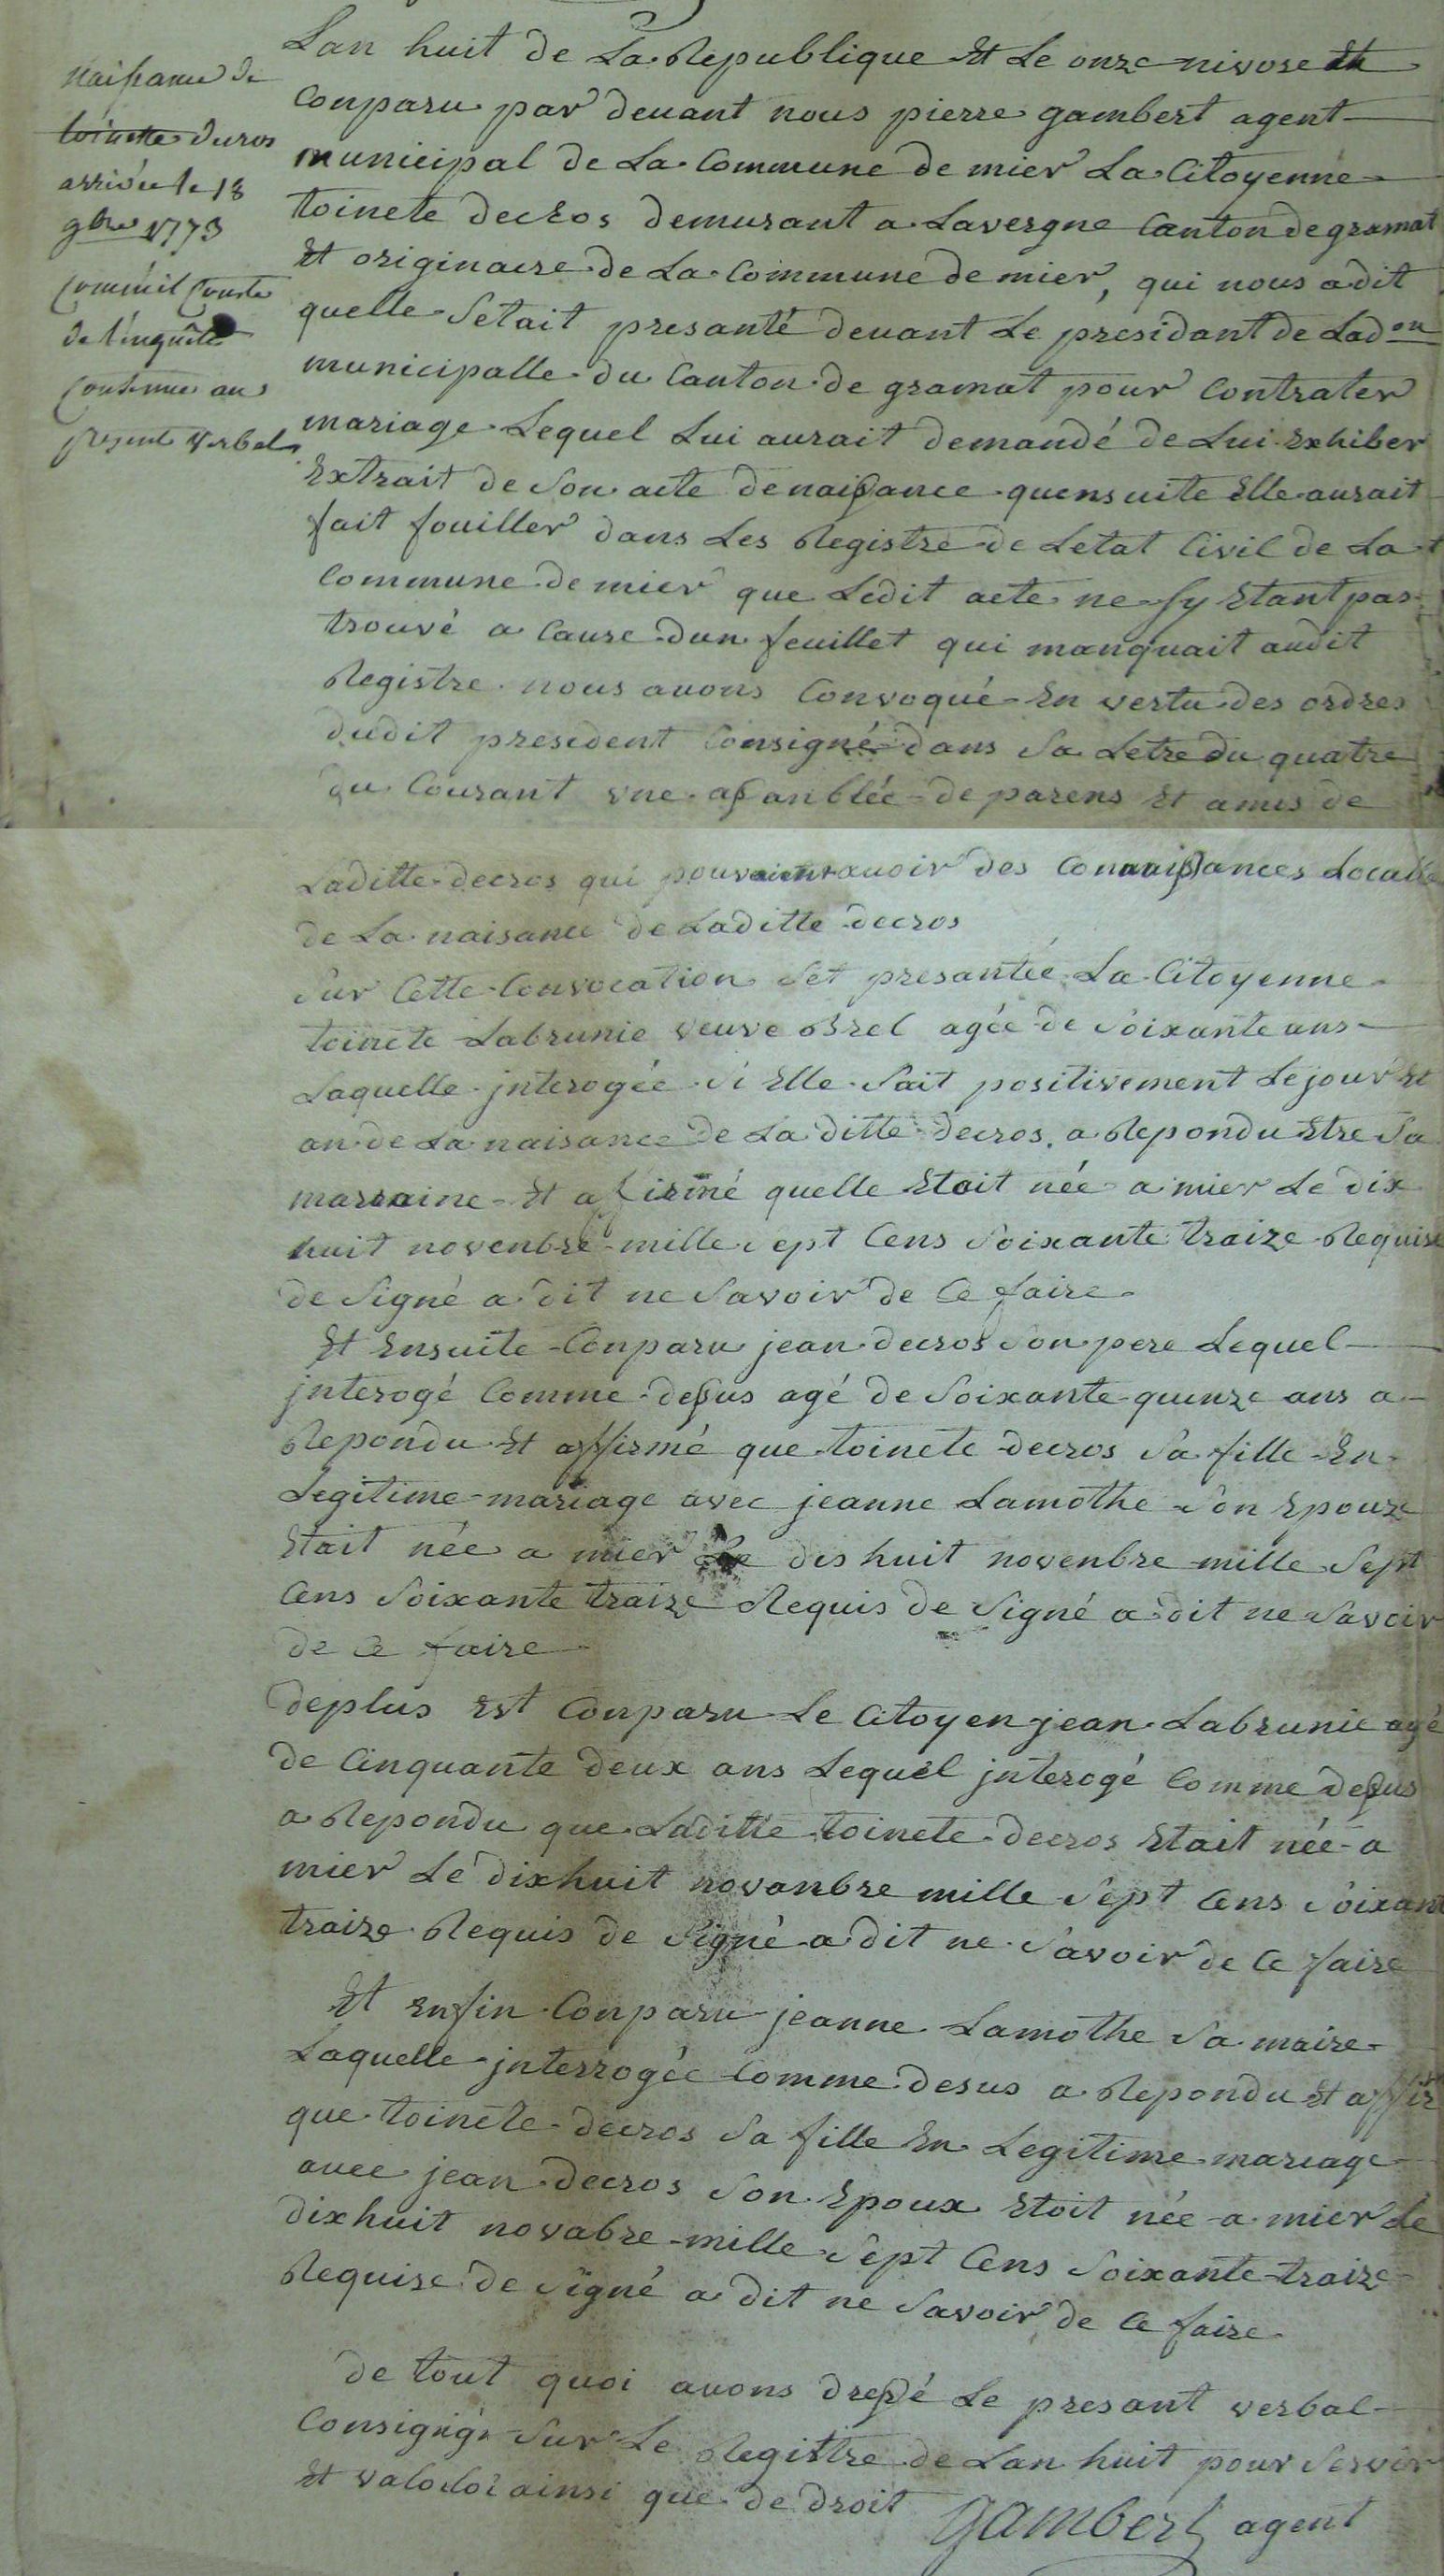 naissance de
toinette ducros
arrivée le 18
9bre 1773
comme il conste
de l'enquête
contenue au
present verbal
Lan huit de La Republique Et Le onze nivose Et
Conparu par devant nous pierre gambert agent
municipal de La Commune de mier La Citoyenne
toinete decros demurant a Lavergne Canton de gramat
Et originaire de La Commune de mier, qui nous a dit
quelle Setait presanté devant Le presidant de Ladon
municipalle du Canton de gramat pour Contrater
mariage Lequel Lui aurait demandé de Lui Exhiber
Extrait de Son acte de naissance quensuite Elle aurait
fait fouiller dans Les Registre de Letat Civil de La
Commune de mier que Ledit acte ne Sy Etant pas
trouvé a Cause dun feuillet qui manquait audit
Registre nous avons Convoqué En vertu des ordres
dudit president Consigné dans Sa Letre du quatre
du Courant une assanblée de parens Et amis de
Laditte decros qui pouvaient avoir des Connaissances Localle
de La naisance de Laditte decros
Sur Cette Convocation Set presantée La Citoyenne
toinete Labrunie veuve Brel agée de Soixante ans
Laquelle jnterogée Si Elle Sait positivement Le jour Et
an de La naisance de La ditte decros, a Repondu Etre Sa
marraine Et affirmé quelle Etait née a mier Le dix
huit novenbre mille Sept Cens Soixante traize Requise
de Signé a dit ne Savoir de Ce faire
Et Ensuite Conparu jean decros Son pere Lequel
jnterogé Comme dessus agé de Soixante quinze ans a
Repondu Et affirmé que toinete decros Sa fille En
Legitime mariage avec jeanne Lamothe Son Epouze
Etait née a mier Le dis huit novenbre mille Sept
Cens Soixante traize Requis de Signé a dit ne Savoir
de Ce faire
deplus Est Conparu Le Citoyen jean Labrunie agé
de Cinquante deux ans Lequel jnterogé Comme dessus
a Repondu que Laditte toinete decros Etait née a
mier Le dixhuit novanbre mille Sept Cens Soixant
traize Requis de Signé a dit ne Savoir de Ce faire
Et Enfin Conparu jeanne Lamothe Sa maire
Laquelle jnterrogée Comme desus a Repondu Et affir
que toinete decros Sa fille En Legitime mariage
avec jean decros Son Epoux Etoit née a mier Le
dixhuit novabre mille Sept Cens Soixante traize
Requise de Signé a dit ne Savoir de Ce faire
de tout quoi avons dressé Le presant verbal
Consigné Sur Le Registre de Lan huit pour Servir
Et valoloir ainsi que de droit
Gambert agent